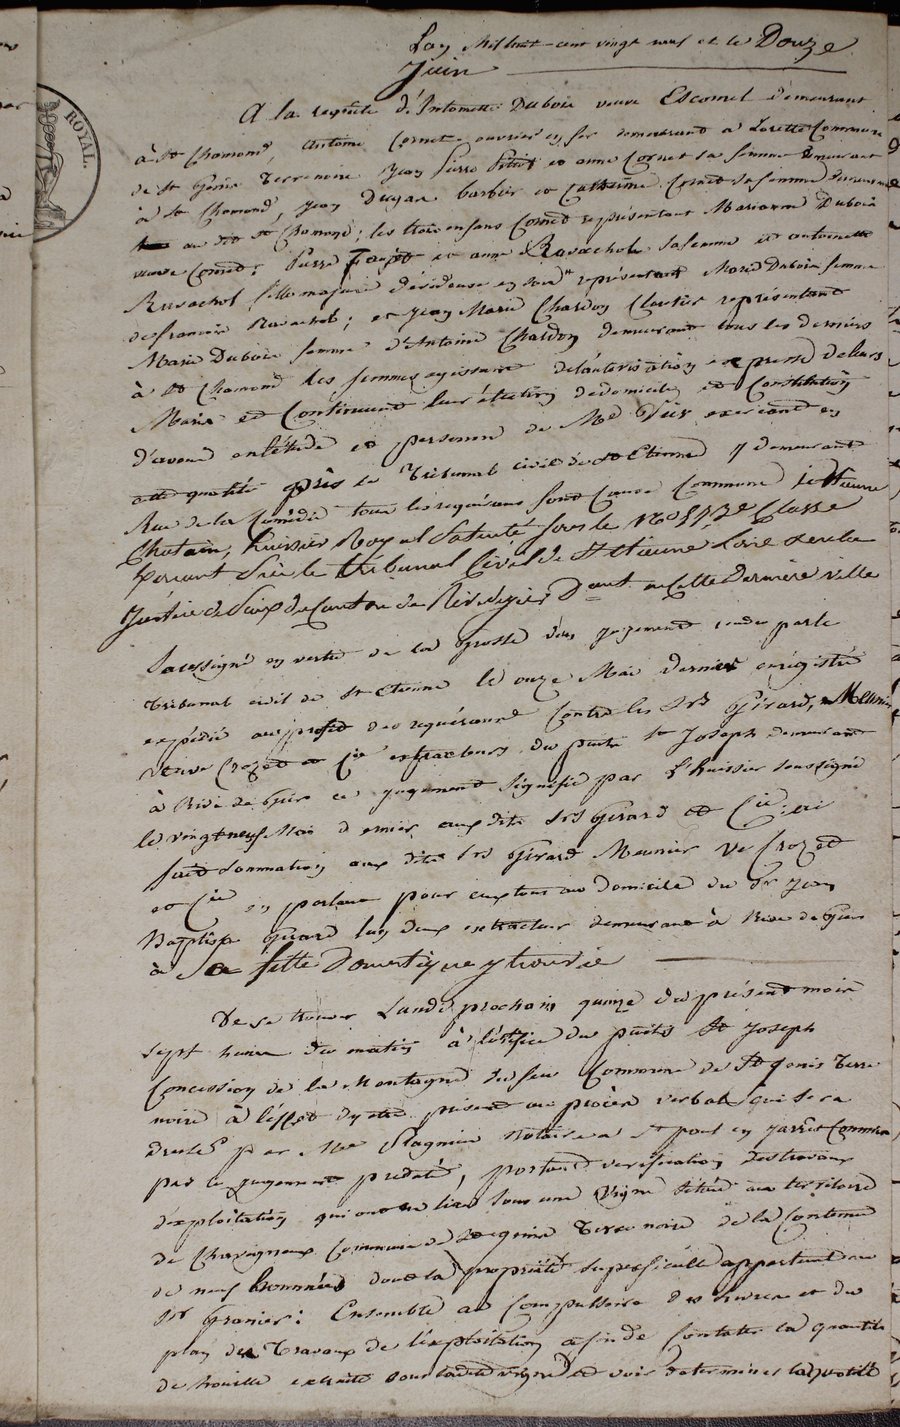 L'an Mil huit cent vingt neuf et le Douze
Juin
ROYAL.
A la requête d'Antoinette Duboie veuve Escomel demeurant
à St Chamond, Antoine Cornet ouvrier en fer demeurant à Lorette Commune
de St Genis Terrenoire Jean Pierre et anne Cornet sa femme demeurant
à St Chamond, Jean Dujan barbier et Catherine Cornet sa femme demeurant
au dit St Chamond; les trois enfans Cornet représentant Marianne Duboie
veuve Cornet; Pierre et anne Ravachol sa femme et antoinette
Ravachol fille majeure dévideuse en soie représentant Marie Duboie femme
de françois Ravachol; et Jean Marie Chardon Cloutier représentant
Marie Duboie femme d'Antoine Chardon demeurant tous les derniers
à St Chamond les femmes agissant de l'autorisation expresse de leurs
Maris et Continuent leur élection de domicile et Constitution
d'avoué en l'étude et personne de Me exercant en
cette qualité près le Tribunal civil de St Etienne y demeurant
Rue de la Comédie tous les requérans font Cause Commune
Chatain, huissier Royal Patenté sous le No 3e Classe
près le tribunal Civil de St Etienne Loire et en la
Justice de Paix du Canton de Rivedegier Dmt à Cette Dernière ville
Soussigné en vertu de la Grosse d'un jugement rendu par le
tribunal civil de St Etienne le onze Mai dernier enrégistré
expédié au profit des requérans Contre les Srs Girard, Meunier,
veuve Crozet et Cie extracteurs du puits St Joseph demeurant
à Rive de Gier ce jugement signifié par L'huissier soussigné
le vingt neuf Mai dernier auxdits Srs Girard et Cie; ai
fait Sommation aux dits Srs Girard Meunier Ve Crozet
et Cie en parlant pour eux tous au Domicile du Sr Jean
Baptiste Girard l'un deux extracteur demeurant à Rive de Gier
à Sa fille Domestique y trouvée
De se trouver Lundi prochain quinze du présent mois
sept heures du matin à l'orifice du puits St Joseph
Concession de la Montagne du feu Commune de St Genis Terre
noire à l'effet d'y être présent au procès verbal qui sera
dressé par Me Ragnier Notaire à St paul en Jarret Commis
par le jugement prédaté, portant vérification des travaux
d'exploitation qui ont eu lieu sous une Vigne située au territoire
de Chavagneux Commune de St genis Terre noire de la Contenue
de neuf hommées dont la propriété superficielle appartient au
Sr Granier: Ensemble au Compulsoire des livres et du
plan des Travaux de l'exploitation afin de Constater la quantité
de houille extraite sous ladite vigne et voir déterminer la quotité